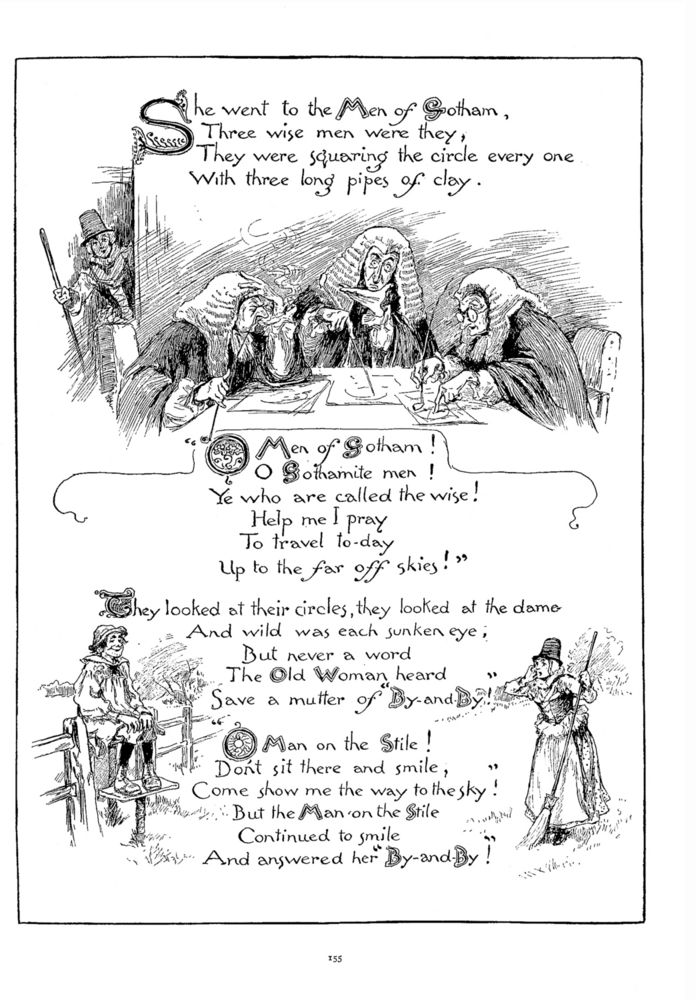 She went to the Men of Gotham,
Three wise men were they,
They were squaring the circle every one
With three long pipes of clay.
"O Men of Gotham!
O Gothamite men!
Ye who are called the wise!
Help me I pray
To travel to-day
Up to the far off skies!"
They looked at their circles, they looked at the dame
And wild was each sunken eye;
But never a word
The Old Woman heard
Save a mutter of "By-and-By!"
"O Man on the Stile!
Don't sit there and smile,
Come show me the way to the sky!"
But the Man on the Stile
Continued to smile
And answered her "By-and-By!"
155